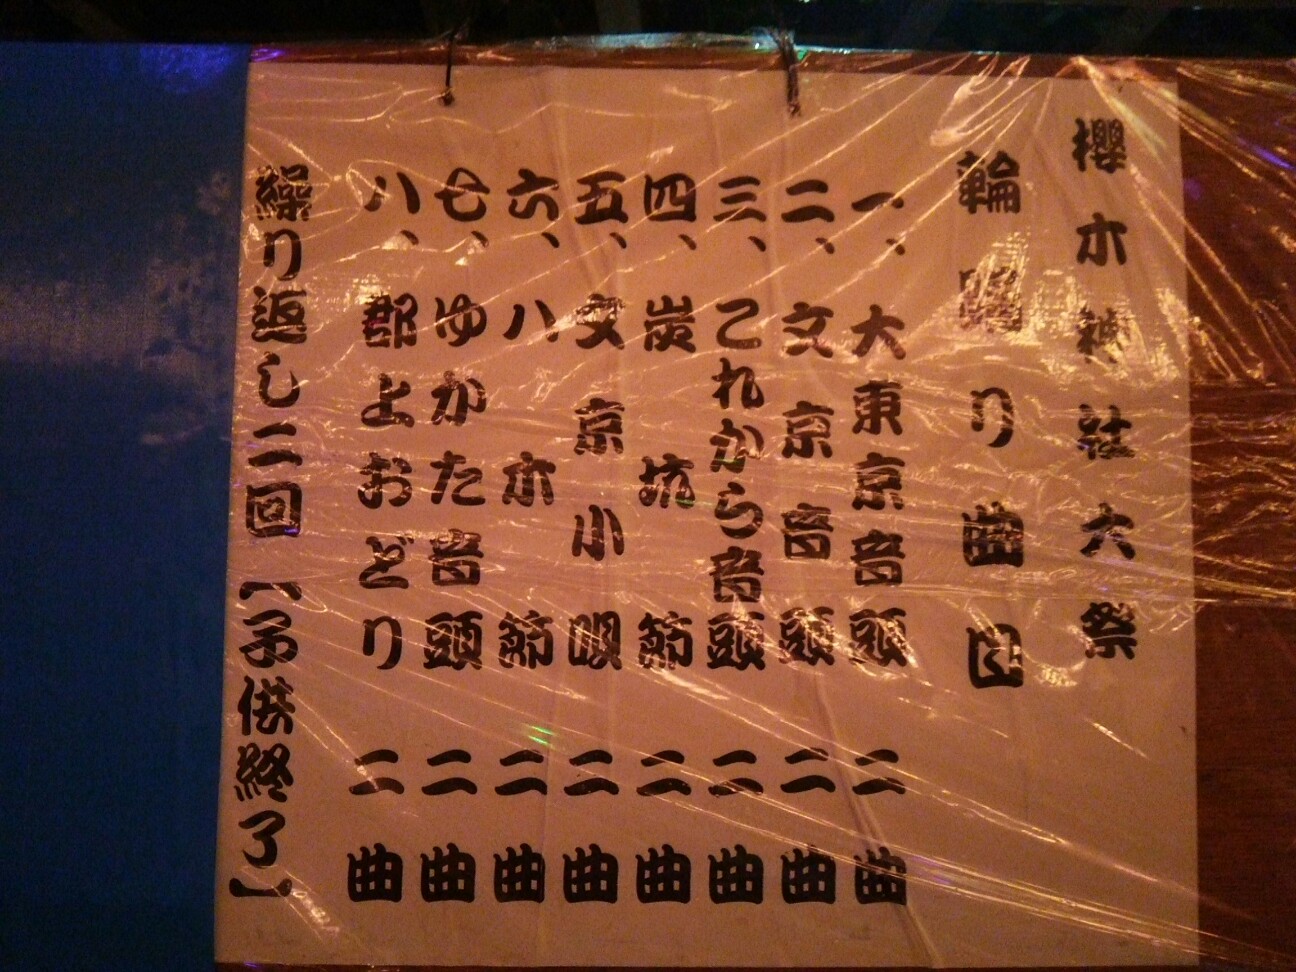 櫻木神社大祭
輪踊り曲目
一、大東京音頭 二曲
二、文京音頭 二曲
三、これから音頭 二曲
四、炭坑節 二曲
五、文京小唄 二曲
六、八木節 二曲
七、ゆかた音頭 二曲
八、郡上おどり 二曲
繰り返し二回【子供終了】